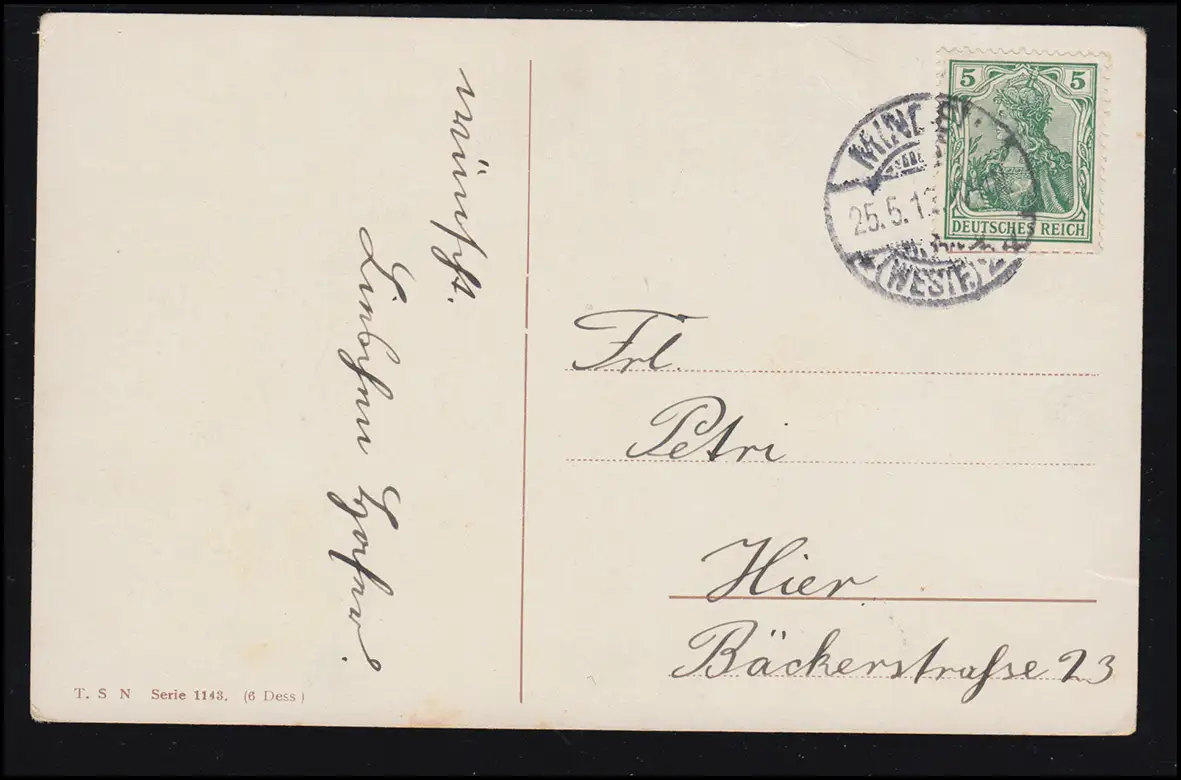 wünscht.
Linchen
5 5
DEUTSCHES REICH
MINDEN
25.5.1
(WESTF.) 2
Frl.
Petri
Hier
Bäckerstraſse 23
T. S N Serie 1143. (6 Dess)